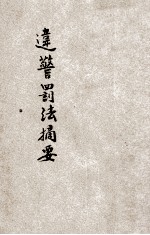 違警罰法摘要